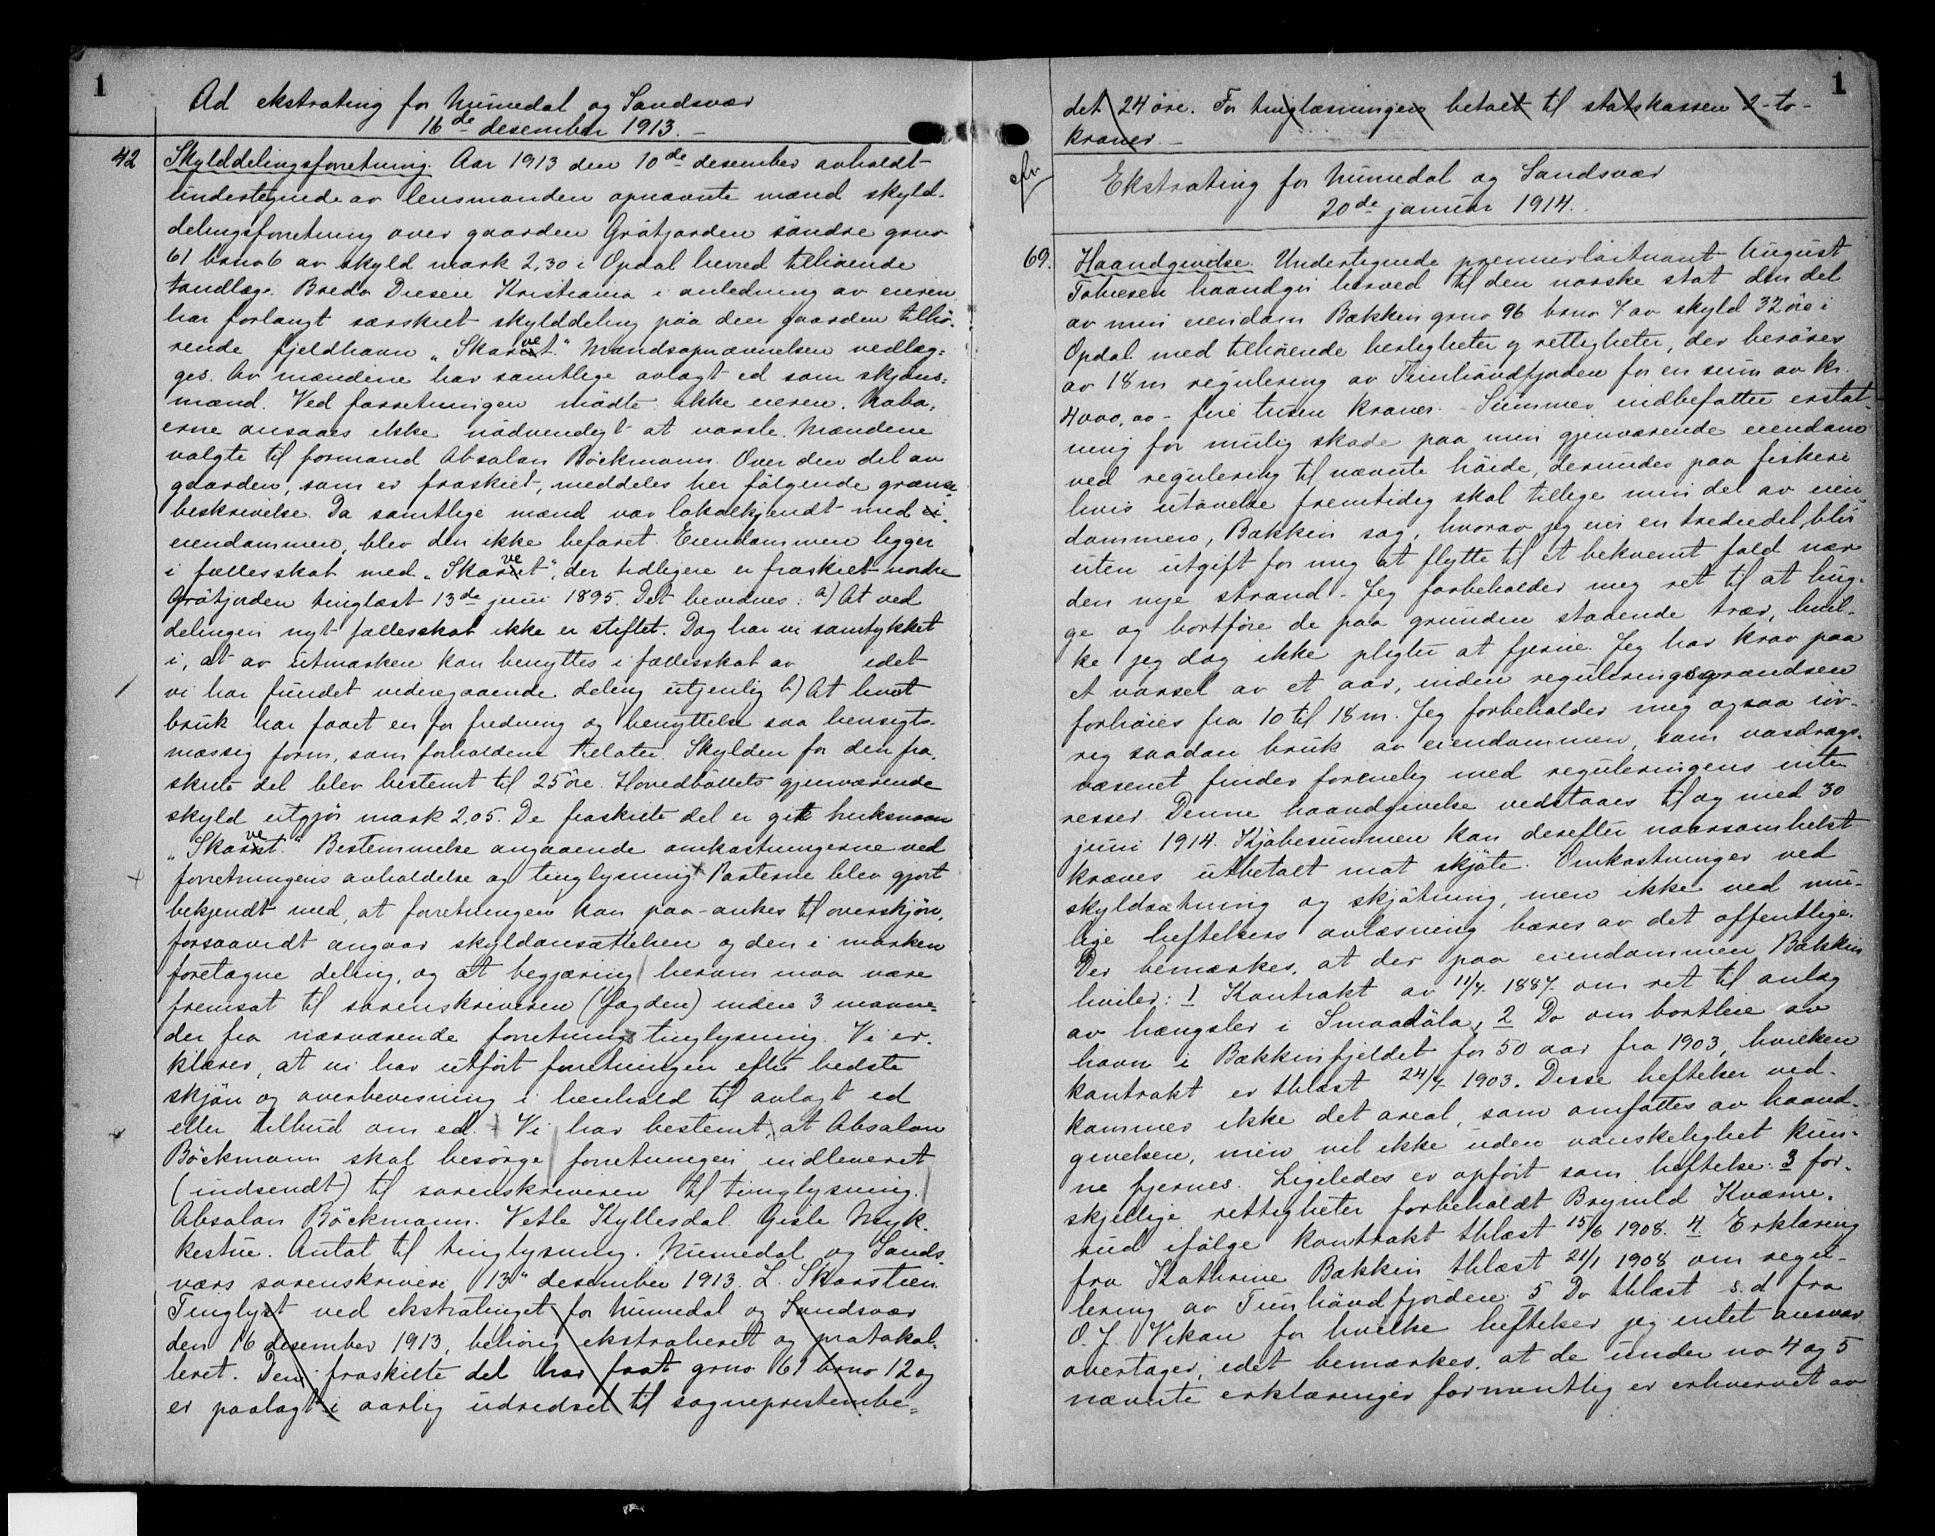 1
Ad ekstrating for Numedal og Sandsvær
16de desember 1913.-
42 Skylddelingsforretning. Aar 1913 den 10de desember avholdt
undertegnede av lensmanden opnævnte mænd skyld-
delingsforretning over gaarden Gråtjorden söndre grno
61 brno 6 av skyld mark 2,30 i Opdal herred tilhörende
tandlæge Breda Diesen Kristiania i anledning av eieren
har forlangt særskilt skylddeling paa den gaarden tilhö-
rende fjeldhavn "Skarvet". Mændsopnævnelsen vedlæg-
ges. Av mændene har samtlige avlagt ed som skjöns-
mænd. Ved forretningen mödte: ikke eieren. Nabo-
erne ansaaes ikke nödvendigt at varsle. Mændene
valgte til formand Absalon Böckmann. Over den del av
gaarden, som er fraskilt, meddeles her fölgende grænse-
beskrivelse. Da samtlige mænd var lokalkjendt med ei
eiendommen, blev den ikke befaret. Eiendommen ligger
i fællesskab med "Skarvet", der tidligere er fraskilt nordre
Gråtjorden tinglæst 13de juni 1895. Det bevidnes: a) At ved
delingen nyt fællesskab ikke er stiftet. Dog har vi samtykket
i, at av utmarken kan benyttes i fællesskab av idet
vi har fundet videregaaende deling utjenlig b) At hvert
bruk har faaet en for fredning og benyttelse saa hensigts-
mæssig form, som forholdene tillater. Skylden for den fra-
skilte del blev bestemt til 25 öre. Hovedbölets gjenværende
skyld utgjör mark 2,05. De fraskilte del er git bruksnavn
"Skarvet" Bestemmelse angaaende omkostningerne ved
forretningens avholdelse og tinglysning. Parterne blev gjort
bekjendt med, at forretningen kan paa-ankes til overskjön,
forsaavidt angaar skyldansættelsen og den i marken
foretagne deling, og at begjæring herom maa være
fremsat til sorenskriveren (fogden) inden 3 maane-
der fra nærværende forretnings tinglysning. Vi er-
klærer, at vi har utfört forretningen efter bedste
skjön og overbevisning i henhold til avlagt ed
eller tilbud om ed. Vi har bestemt, at Absalon
Böckmann skal besörge forretningen indleveret
(indsendt) til sorenskriveren til tinglysning.
Absalon Böckmann. Vetle Kyllesdal. Gisle Myk-
kestue. Antat til tinglysning. Numedal og Sands-
værs sorenskriveri 13" desember 1913. L. Skarstein
Tinglyst ved ekstratinget for Numedal og Sandsvær
den 16 desember 1913, behörig ekstraheret og protokol-
leret. Den fraskilte del har faat grno 61 brno 12 og
er paalagt i aarlig udredsel til sogneprestembe-
1
det 24 öre. For tinglæsningen betalt til statskassen 2-to-
kroner.-
Ekstrating for Numedal og Sandsvær
20de januar 1914.
69. Haandgivelse. Undertegnede premierlöitnant August
Tobiesen haandgir herved til den norske stat den del
av min eiendom Bækken grno 96 brno 7 av skyld 32 öre i
Opdal med tilhörende herligheter og rettigheter, der beröres
av 18 m regulering av Tunhövdfjorden for en sum av kr.
4000,00 - fire tusen kroner. - Summen indbefatter erstat-
ning for mulig skade paa min gjenværende eiendom
ved regulering til nævnte höide, derunder paa fiskeri
hvis utövelse fremtidig skal tillige min del av eien-
dommen, Bækkin sag, hvorav jeg eier en tredjedel, blir
uten utgift for mig at flytte til et bekvemt fald nær
den nye strand. - Jeg forbeholder meg ret til at hug-
ge og bortföre de paa grunden staaende trær, hvil-
ke jeg dog ikke pligter at fjerne. Jeg har krav paa
et varsel av et aar, inden reguleringsgrændsen
forhöies fra 10 til 18 m. Jeg forbeholder meg ogsaa iöv-
rig saadan bruk av eiendommen, som vasdrags-
væsenet finder forenelig med reguleringens inte-
resser. Denne haandgivelse vedstaaes til og med 30
juni 1914. Kjöbesummen kan derefter naarsomhelst
kræves utbetalt mot skjöte. Omkostninger ved
skyldsætning og skjötning, men ikke ved mu-
lige heftelsers avlæsning bæres av det offentlige.
Der bemærkes, at der paa eiendommen Bækkin
hviler: 1 Kontrakt av 11/7 1887 om ret til anlæg
av hængsler i Smaadöla, 2 Do om bortleie av
havn i Bækkinfjeldet for 50 aar fra 1903, hvilken
kontrakt er thlæst 24/7 1903. Disse heftelser ved-
kommer ikke det areal, som omfattes av haand-
givelsen, men vil ikke uden vanskelighet kun-
ne fjernes. Ligeledes er opfört som heftelse: 3 for-
skjellige rettigheter forbeholdt Brynild Kværne-
rud ifölge kontrakt thlæst 15/6 1908. 4 Erklæring
fra Kathrine Bækkin thlæst 21/1 1908 om regu-
lering av Tunhövdfjorden. 5 Do thlæst s.d fra
O. J. Vikan for hvilke heftelser jeg intet ansvar
overtager, idet bemærkes, at de under no 4 og 5
nævnte erklæringer formentlig er erhvervet av